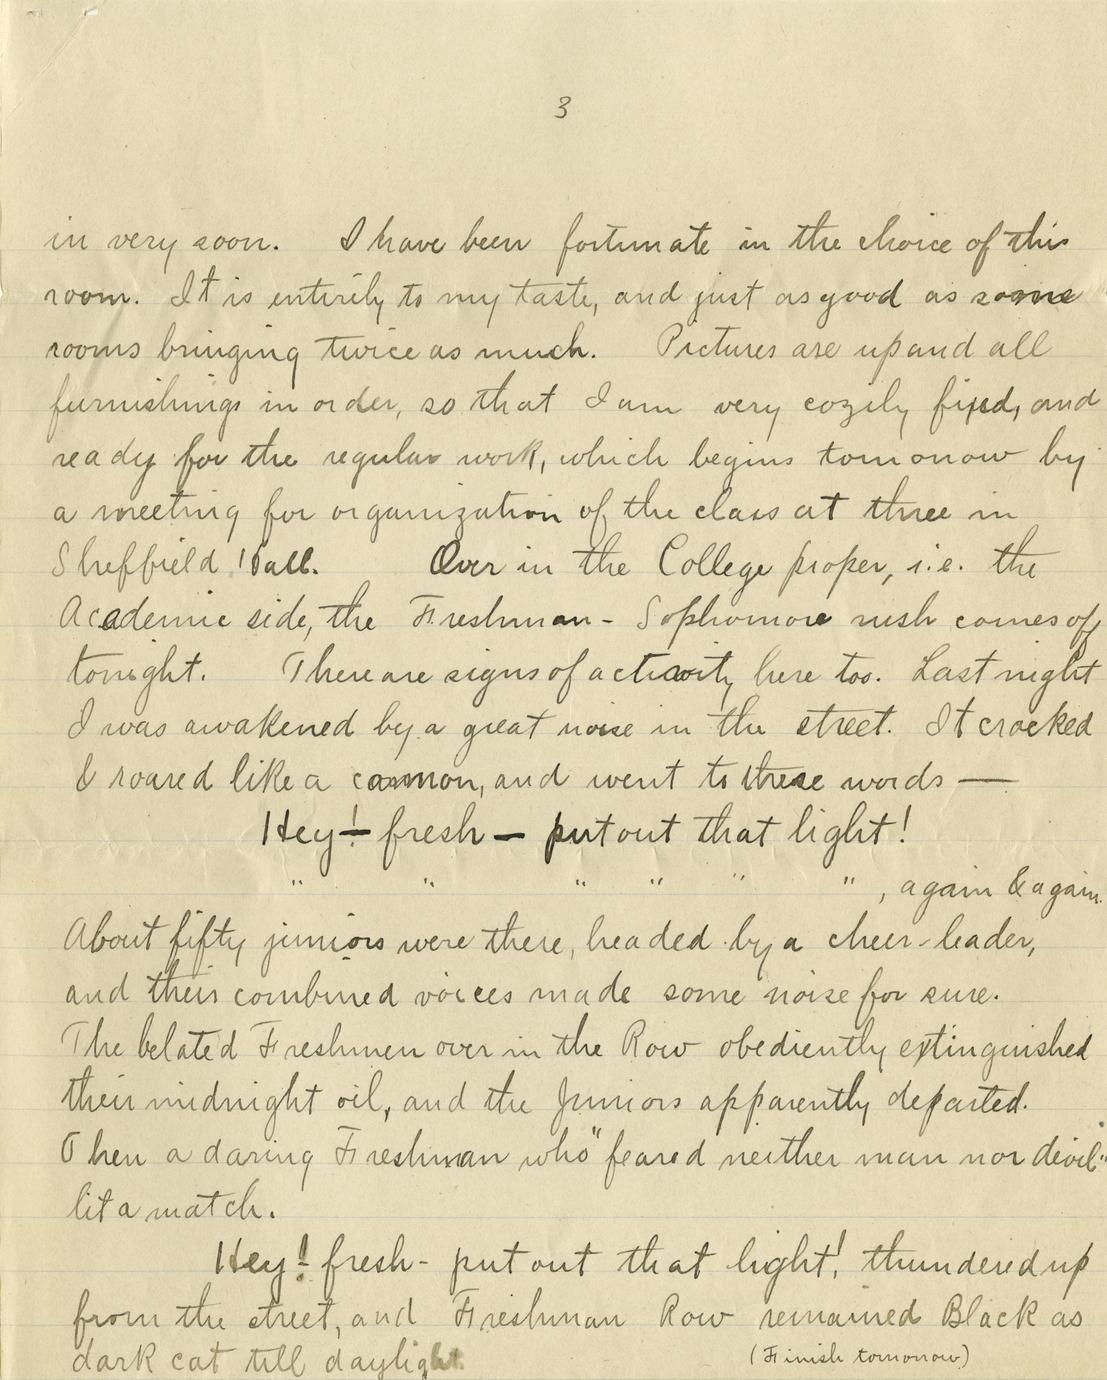 3
in very soon. I have been fortunate in the choice of this
room. It is entirely to my taste, and just as good as some
rooms bringing twice as much. Pictures are up and all
furnishings in order, so that I am very cozily fixed, and
ready for the regular work, which begins tomorrow by
a meeting for organization of the class at three in
Sheffield Hall. Over in the College proper, i.e. the
Academic side, the Freshman - Sophomore rush comes off
tonight. There are signs of activity here too. Last night
I was awakened by a great noise in the street. It cracked
& roared like a cannon, and went to these words —
Hey! — fresh — put out that light!
" " " " " " , again & again.
About fifty juniors were there, headed by a cheer-leader,
and their combined voices made some noise for sure.
The belated Freshmen over in the Row obediently extinguished
their midnight oil, and the Juniors apparently departed.
Then a daring Freshman who "feared neither man nor divil"
lit a match.
Hey! fresh - put out that light! thundered up
from the street, and Freshman Row remained Black as
dark cat till daylight.
(Finish tomorrow)